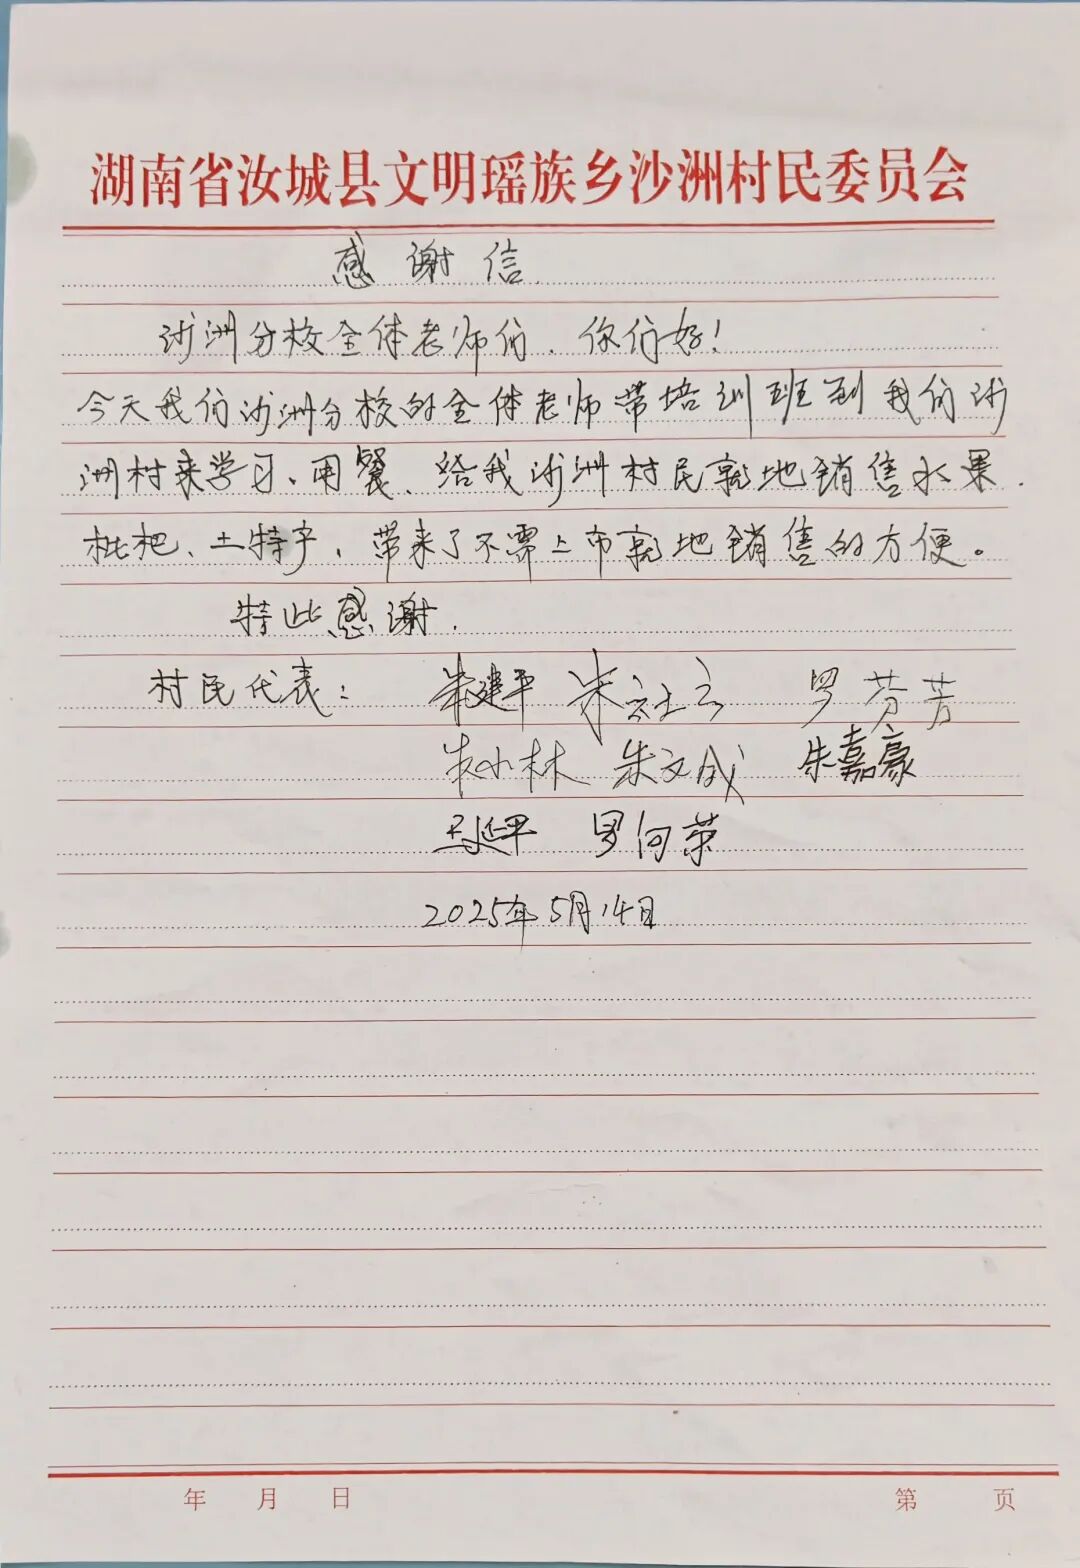 湖南省汝城县文明瑶族乡沙洲村民委员会
感谢信
沙洲分校全体老师们、你们好!
今天我们沙洲分校的全体老师带培训班到我们沙
洲村来学习、用餐、给我沙洲村民就地销售水果、
枇杷、土特产,带来了不需上市就地销售的方便。
特此感谢.
村民代表: 朱建平 朱 罗芬芳
朱小林 朱文成 朱嘉豪
延平 罗向荣
2025年5月14日
年 月 日 第 页